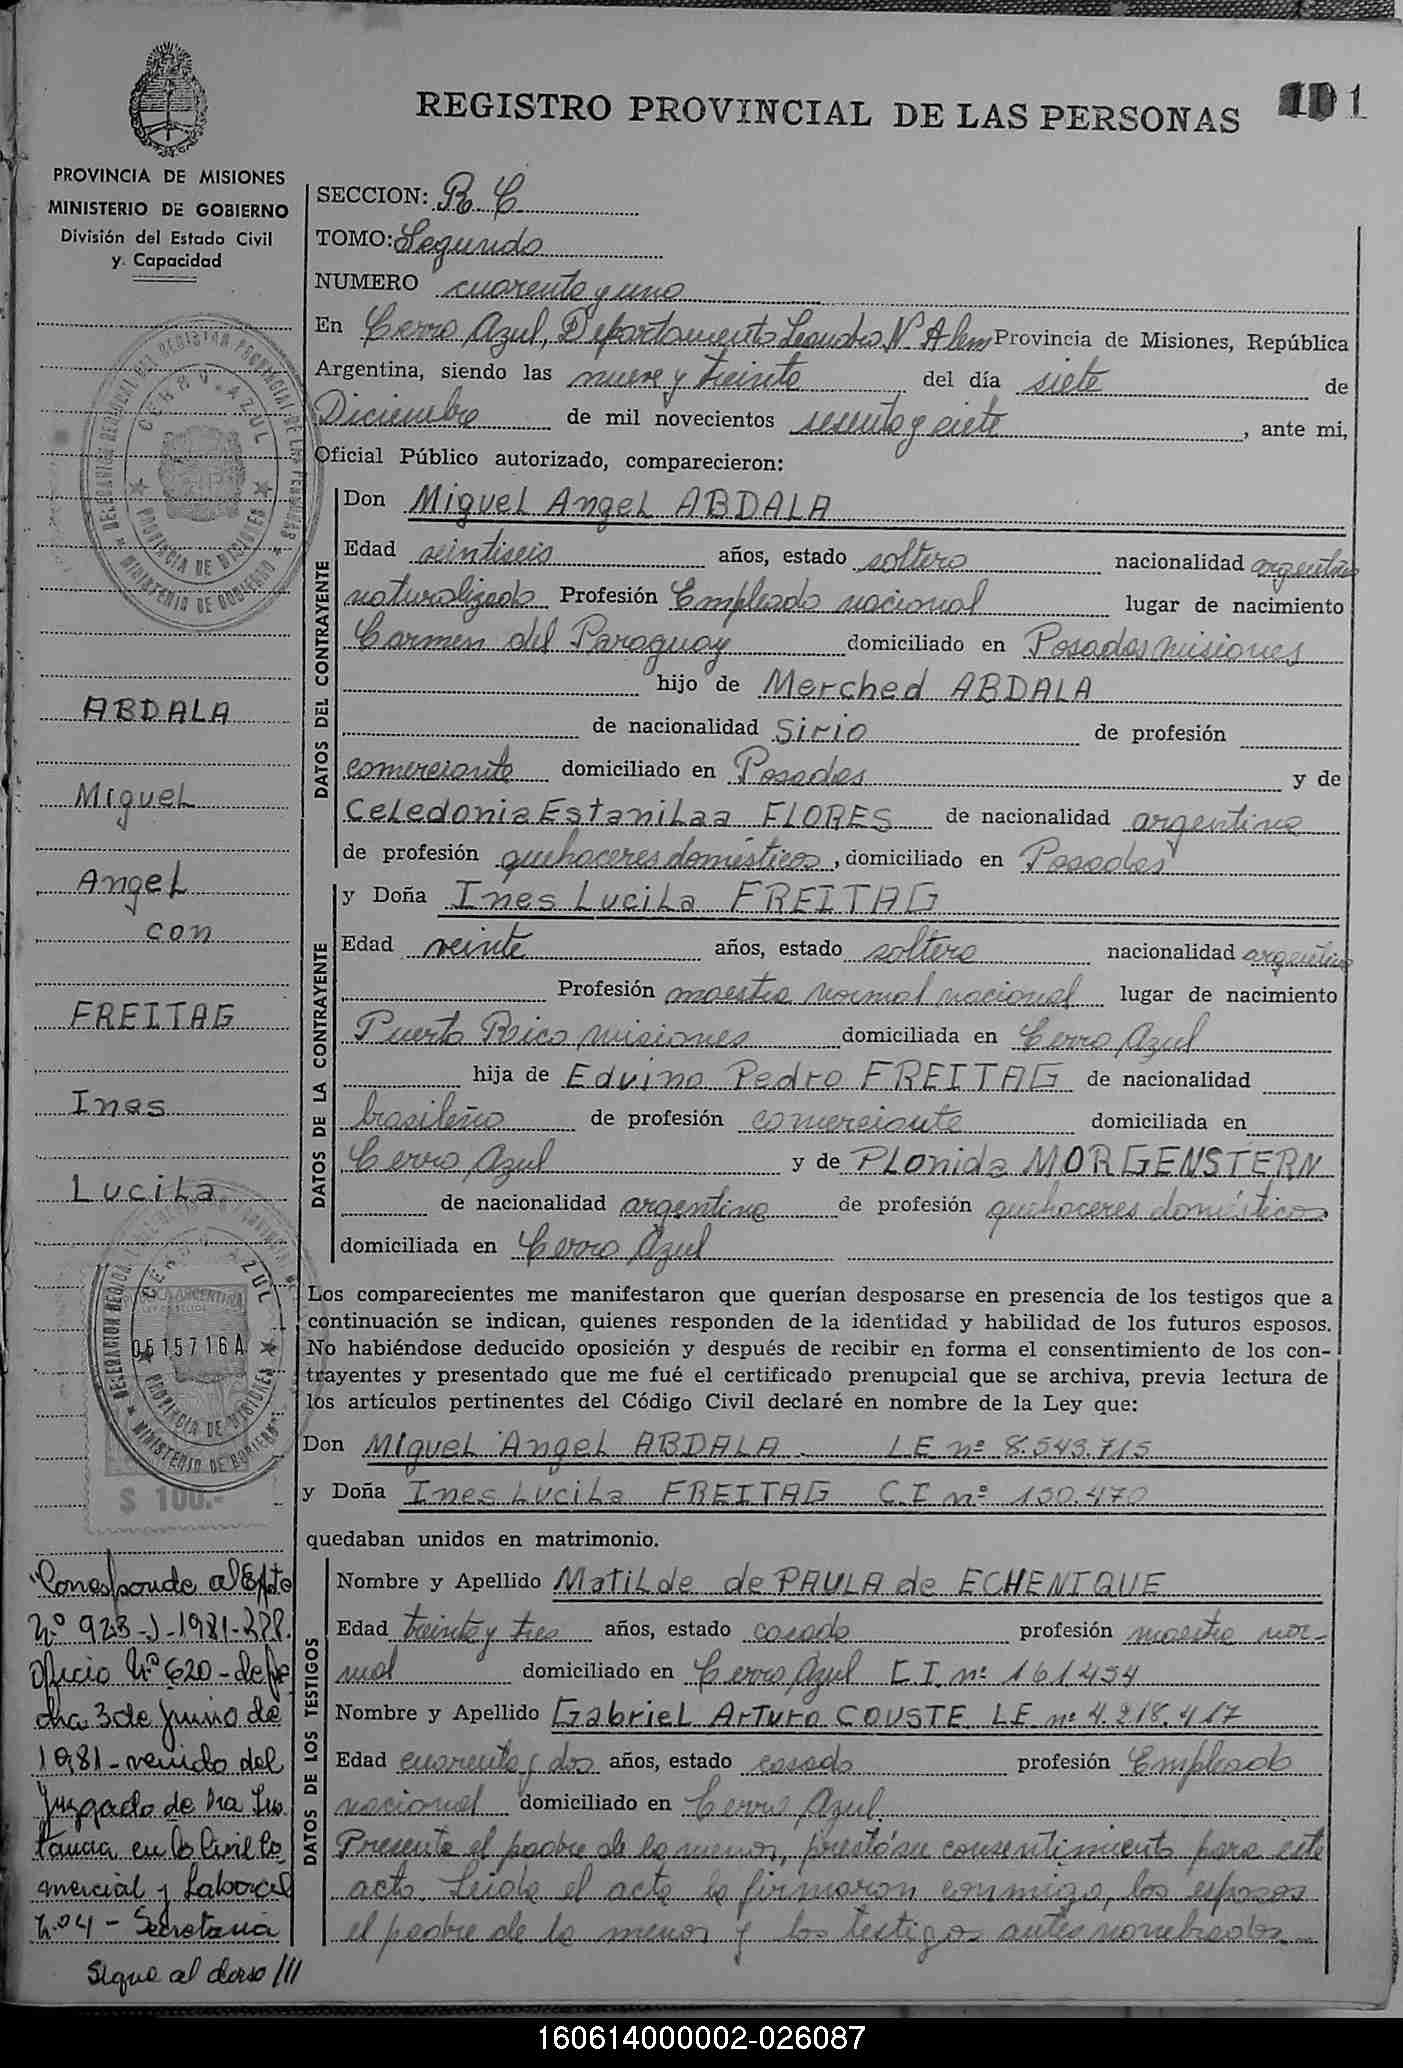 REGISTRO PROVINCIAL DE LAS PERSONAS 101
PROVINCIA DE MISIONES
MINISTERIO DE GOBIERNO
División del Estado Civil
y Capacidad
SECCION: R C
TOMO: Segundo
NUMERO cuarenta y uno
En Cerro Azul, Departamento Leandro N. Alem Provincia de Misiones, República
Argentina, siendo las nueve y treinta del día siete de
Diciembre de mil novecientos sesenta y siete, ante mi,
Oficial Público autorizado, comparecieron:
DATOS DEL CONTRAYENTE
Don Miguel Angel ABDALA
Edad veintiseis años, estado soltero nacionalidad argentino
naturalizado Profesión Empleado nacional lugar de nacimiento
Carmen del Paraguay domiciliado en Posadas misiones
hijo de Merched ABDALA
de nacionalidad Sirio de profesión
comerciante domiciliado en Posadas y de
Celedonia Estanilaa FLORES de nacionalidad argentina
de profesión quehaceres domésticos, domiciliado en Posadas
DATOS DE LA CONTRAYENTE
y Doña Ines Lucila FREITAG
Edad veinte años, estado soltera nacionalidad argentina
Profesión maestra normal nacional lugar de nacimiento
Puerto Rico misiones domiciliada en Cerro Azul
hija de Edvino Pedro FREITAG de nacionalidad
brasileño de profesión comerciante domiciliada en
Cerro Azul y de PLonida MORGENSTERN
de nacionalidad argentina de profesión quehaceres domésticos
domiciliada en Cerro Azul
Los comparecientes me manifestaron que querían desposarse en presencia de los testigos que a
continuación se indican, quienes responden de la identidad y habilidad de los futuros esposos.
No habiéndose deducido oposición y después de recibir en forma el consentimiento de los con-
trayentes y presentado que me fué el certificado prenupcial que se archiva, previa lectura de
los artículos pertinentes del Código Civil declaré en nombre de la Ley que:
Don Miguel Angel ABDALA LE nº 8.543.715
y Doña Ines Lucila FREITAG C.I nº 150.470
quedaban unidos en matrimonio.
DATOS DE LOS TESTIGOS
Nombre y Apellido Matilde de PAULA de ECHENIQUE
Edad treinta y tres años, estado casada profesión maestra nor-
mal domiciliado en Cerro Azul C.I. nº 161.454
Nombre y Apellido Gabriel Arturo COUSTE LE nº 4.218.417
Edad cuarenta y dos años, estado casado profesión Empleado
nacional domiciliado en Cerro Azul
Presente el padre de la menor, prestó su consentimiento para este
acto. Leida el acta la firmaron conmigo, los esposos
el padre de la menor y los testigos antes nombrados
DELEGACION REGIONAL DEL REGISTRO PROVINCIAL DE LAS PERSONAS
CERRO AZUL
PROVINCIA DE MISIONES
MINISTERIO DE GOBIERNO
ABDALA
Miguel
Angel
con
FREITAG
Ines
Lucila
CERRO AZUL
PROVINCIA DE MISIONES
MINISTERIO DE GOBIERNO
0515716A
$ 100.-
"Corresponde al Expte
Nº 923-J-1981-
Oficio Nº 620- de fe
cha 3 de junio de
1981- venido del
Juzgado de Ira Ins
tancia en lo Civil Co
mercial y Laboral
Nº 4 - Secretaria
Sigue al dorso ///
160614000002-026087